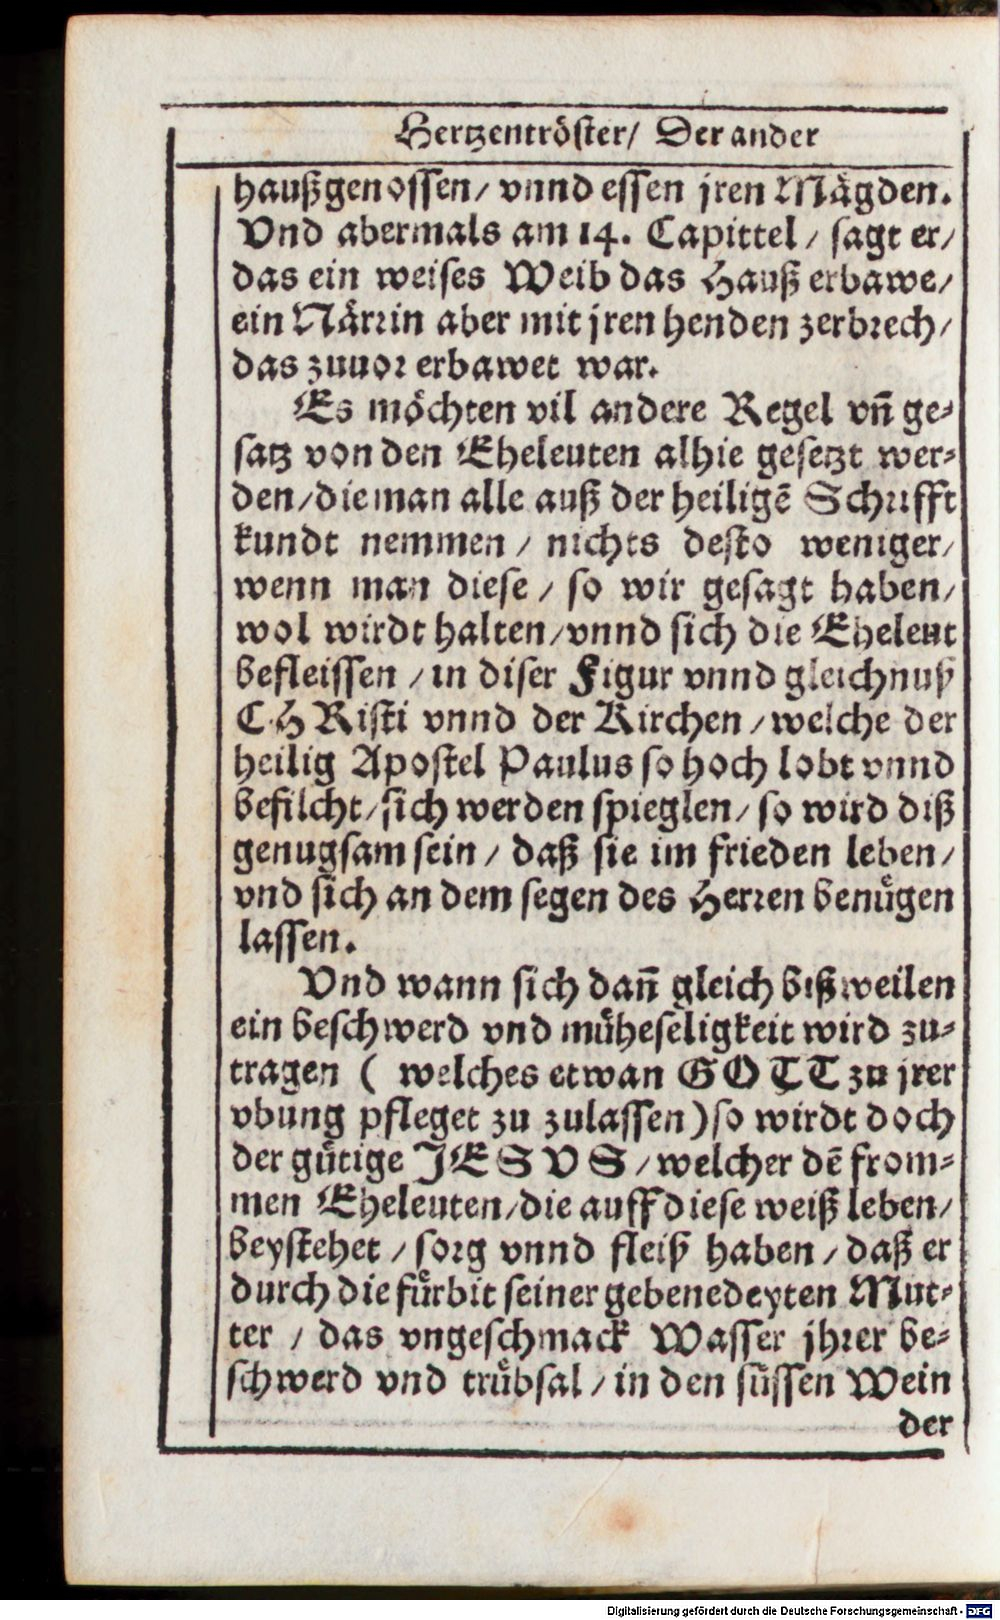 Hertzentröster/ Der ander
haußgenossen/ vnnd essen jren Mägden.
Vnd abermals am 14. Capittel/ sagt er/
das ein weises Weib das Hauß erbawe/
ein Närrin aber mit jren henden zerbrech/
das zuuor erbawet war.
Es möchten vil andere Regel vn̄ ge-
satz von den Eheleuten alhie gesetzt wer-
den/ die man alle auß der heiligē Schrifft
kundt nemmen/ nichts desto weniger/
wenn man diese/ so wir gesagt haben/
wol wirdt halten/ vnnd sich die Eheleut
befleissen/ in diser Figur vnnd gleichnuß
CHRisti vnnd der Kirchen/ welche der
heilig Apostel Paulus so hoch lobt vnnd
befilcht/ sich werden spieglen/ so wird diß
genugsam sein/ daß sie im frieden leben/
vnd sich an dem segen des Herren benůgen
lassen.
Vnd wann sich dan̄ gleich bißweilen
ein beschwerd vnd můheseligkeit wird zu-
tragen ( welches etwan GOTT zu jrer
vbung pfleget zu zulassen) so wirdt doch
der gůtige JESVS/ welcher dē from-
men Eheleuten/ die auff diese weiß leben/
beystehet/ sorg vnnd fleiß haben/ daß er
durch die fůrbit seiner gebenedeyten Mut-
ter/ das vngeschmack Wasser jhrer be-
schwerd vnd trůbsal/ in den sůssen Wein
der
Digitalisierung gefördert durch die Deutsche Forschungsgemeinschaft - DFG